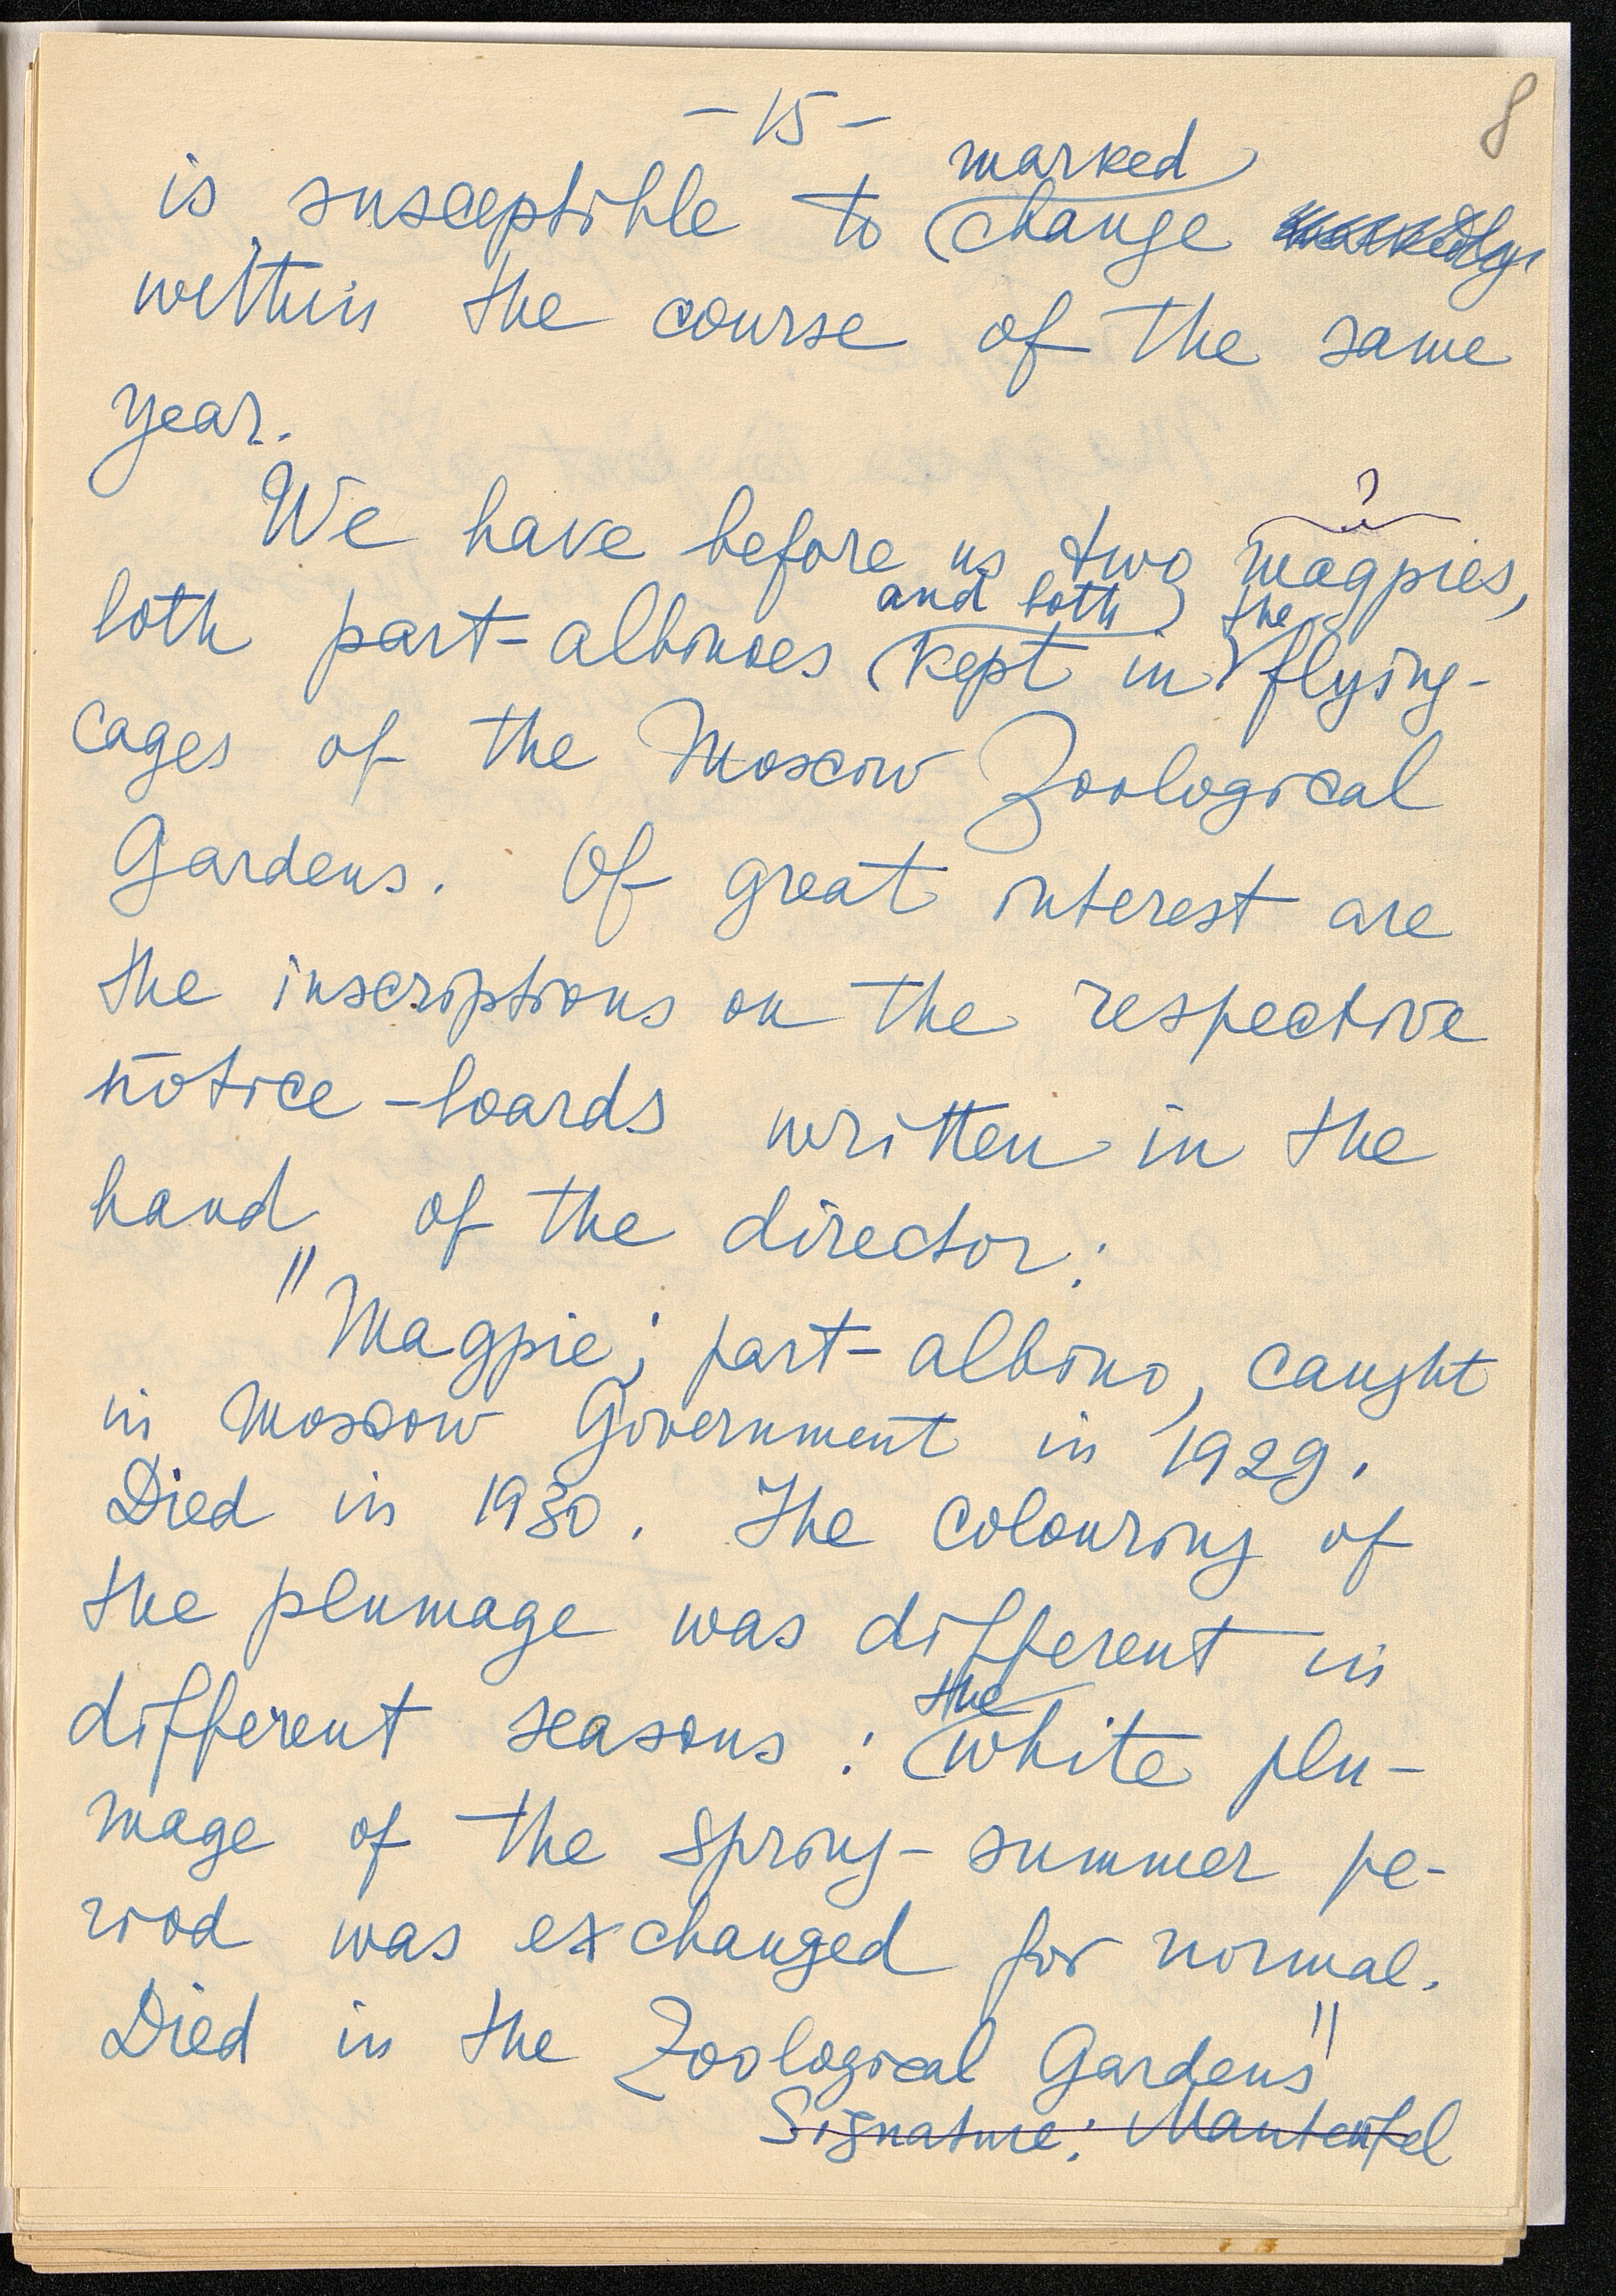 8
- 15 -
is susceptible to marked change markedly
within the course of the same
year.
?
We have before us two magpies,
both part-albinoes and both kept in the flying-
cages of the Moscow Zoological
Gardens. Of great interest are
the inscriptions on the respective
notice-boards written in the
hand of the director:
"Magpie; part-albino, caught
in Moscow Government in 1929.
Died in 1930. The colouring of
the plumage was different in
different seasons: the white plu-
mage of the spring-summer pe-
riod was exchanged for normal.
Died in the Zoological Gardens"
Signature: Manteufel